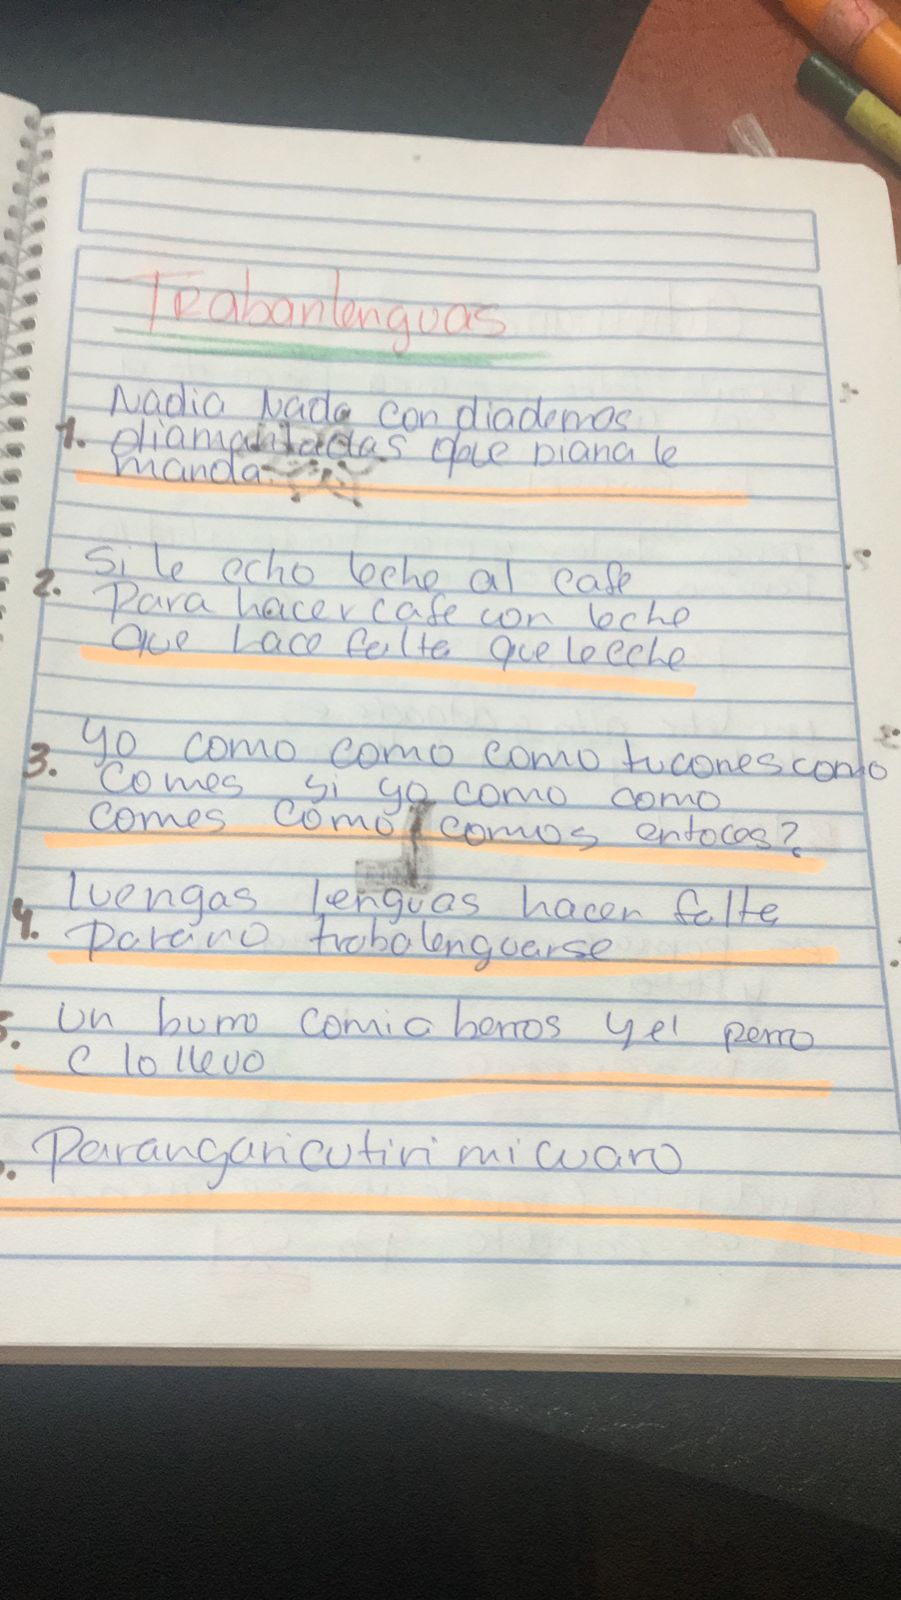 Trabanlenguas
Nadia Nada con diademas
1. diamantadas que Diana le
manda.
Si le echo leche al cafe
2. Para hacer cafe con leche
que hace falta que le eche
yo como como como tu comes como
3. Comes si yo como como
comes como comos entoces?
luengas lenguas hacen falta
4. para no trabalenguarse
un burro comia berros y el perro
5. c lo llevo
Parangaricutirimicuaro